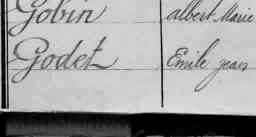 Gobin albert Marie
Godet Emile jean